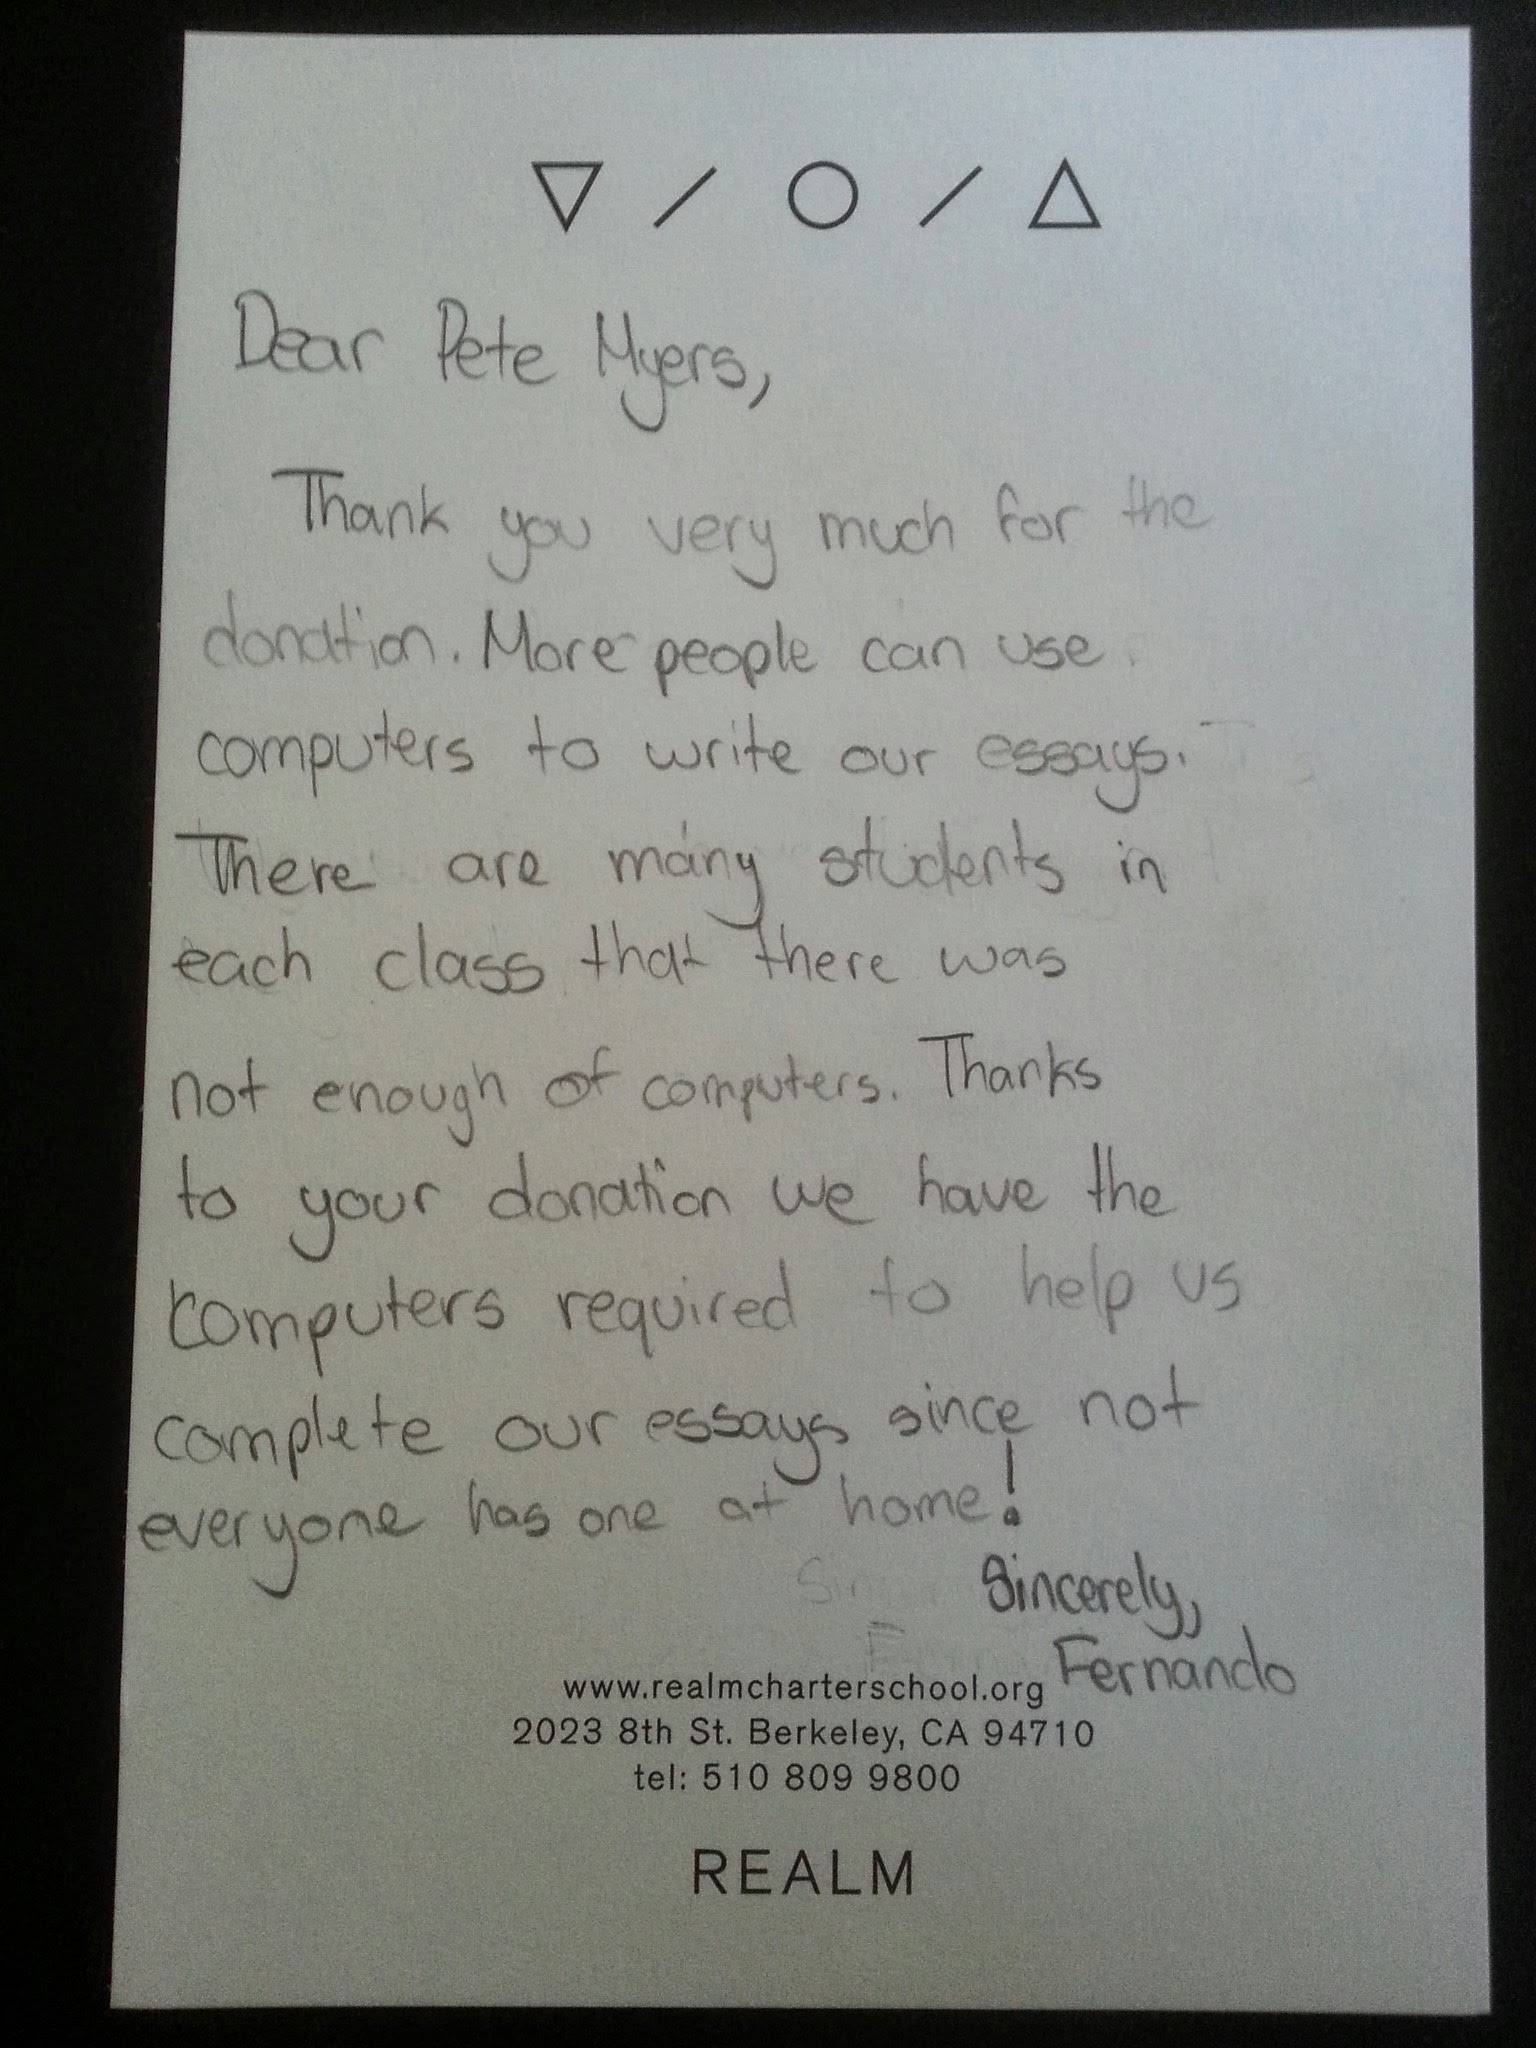 Dear Pete Myers,
Thank you very much for the
donation. More people can use
computers to write our essays.
There are many students in
each class that there was
not enough of computers. Thanks
to your donation we have the
computers required to help us
complete our essays since not
everyone has one at home!
Sincerely,
Fernando
www.realmcharterschool.org
2023 8th St. Berkeley, CA 94710
tel: 510 809 9800
REALM